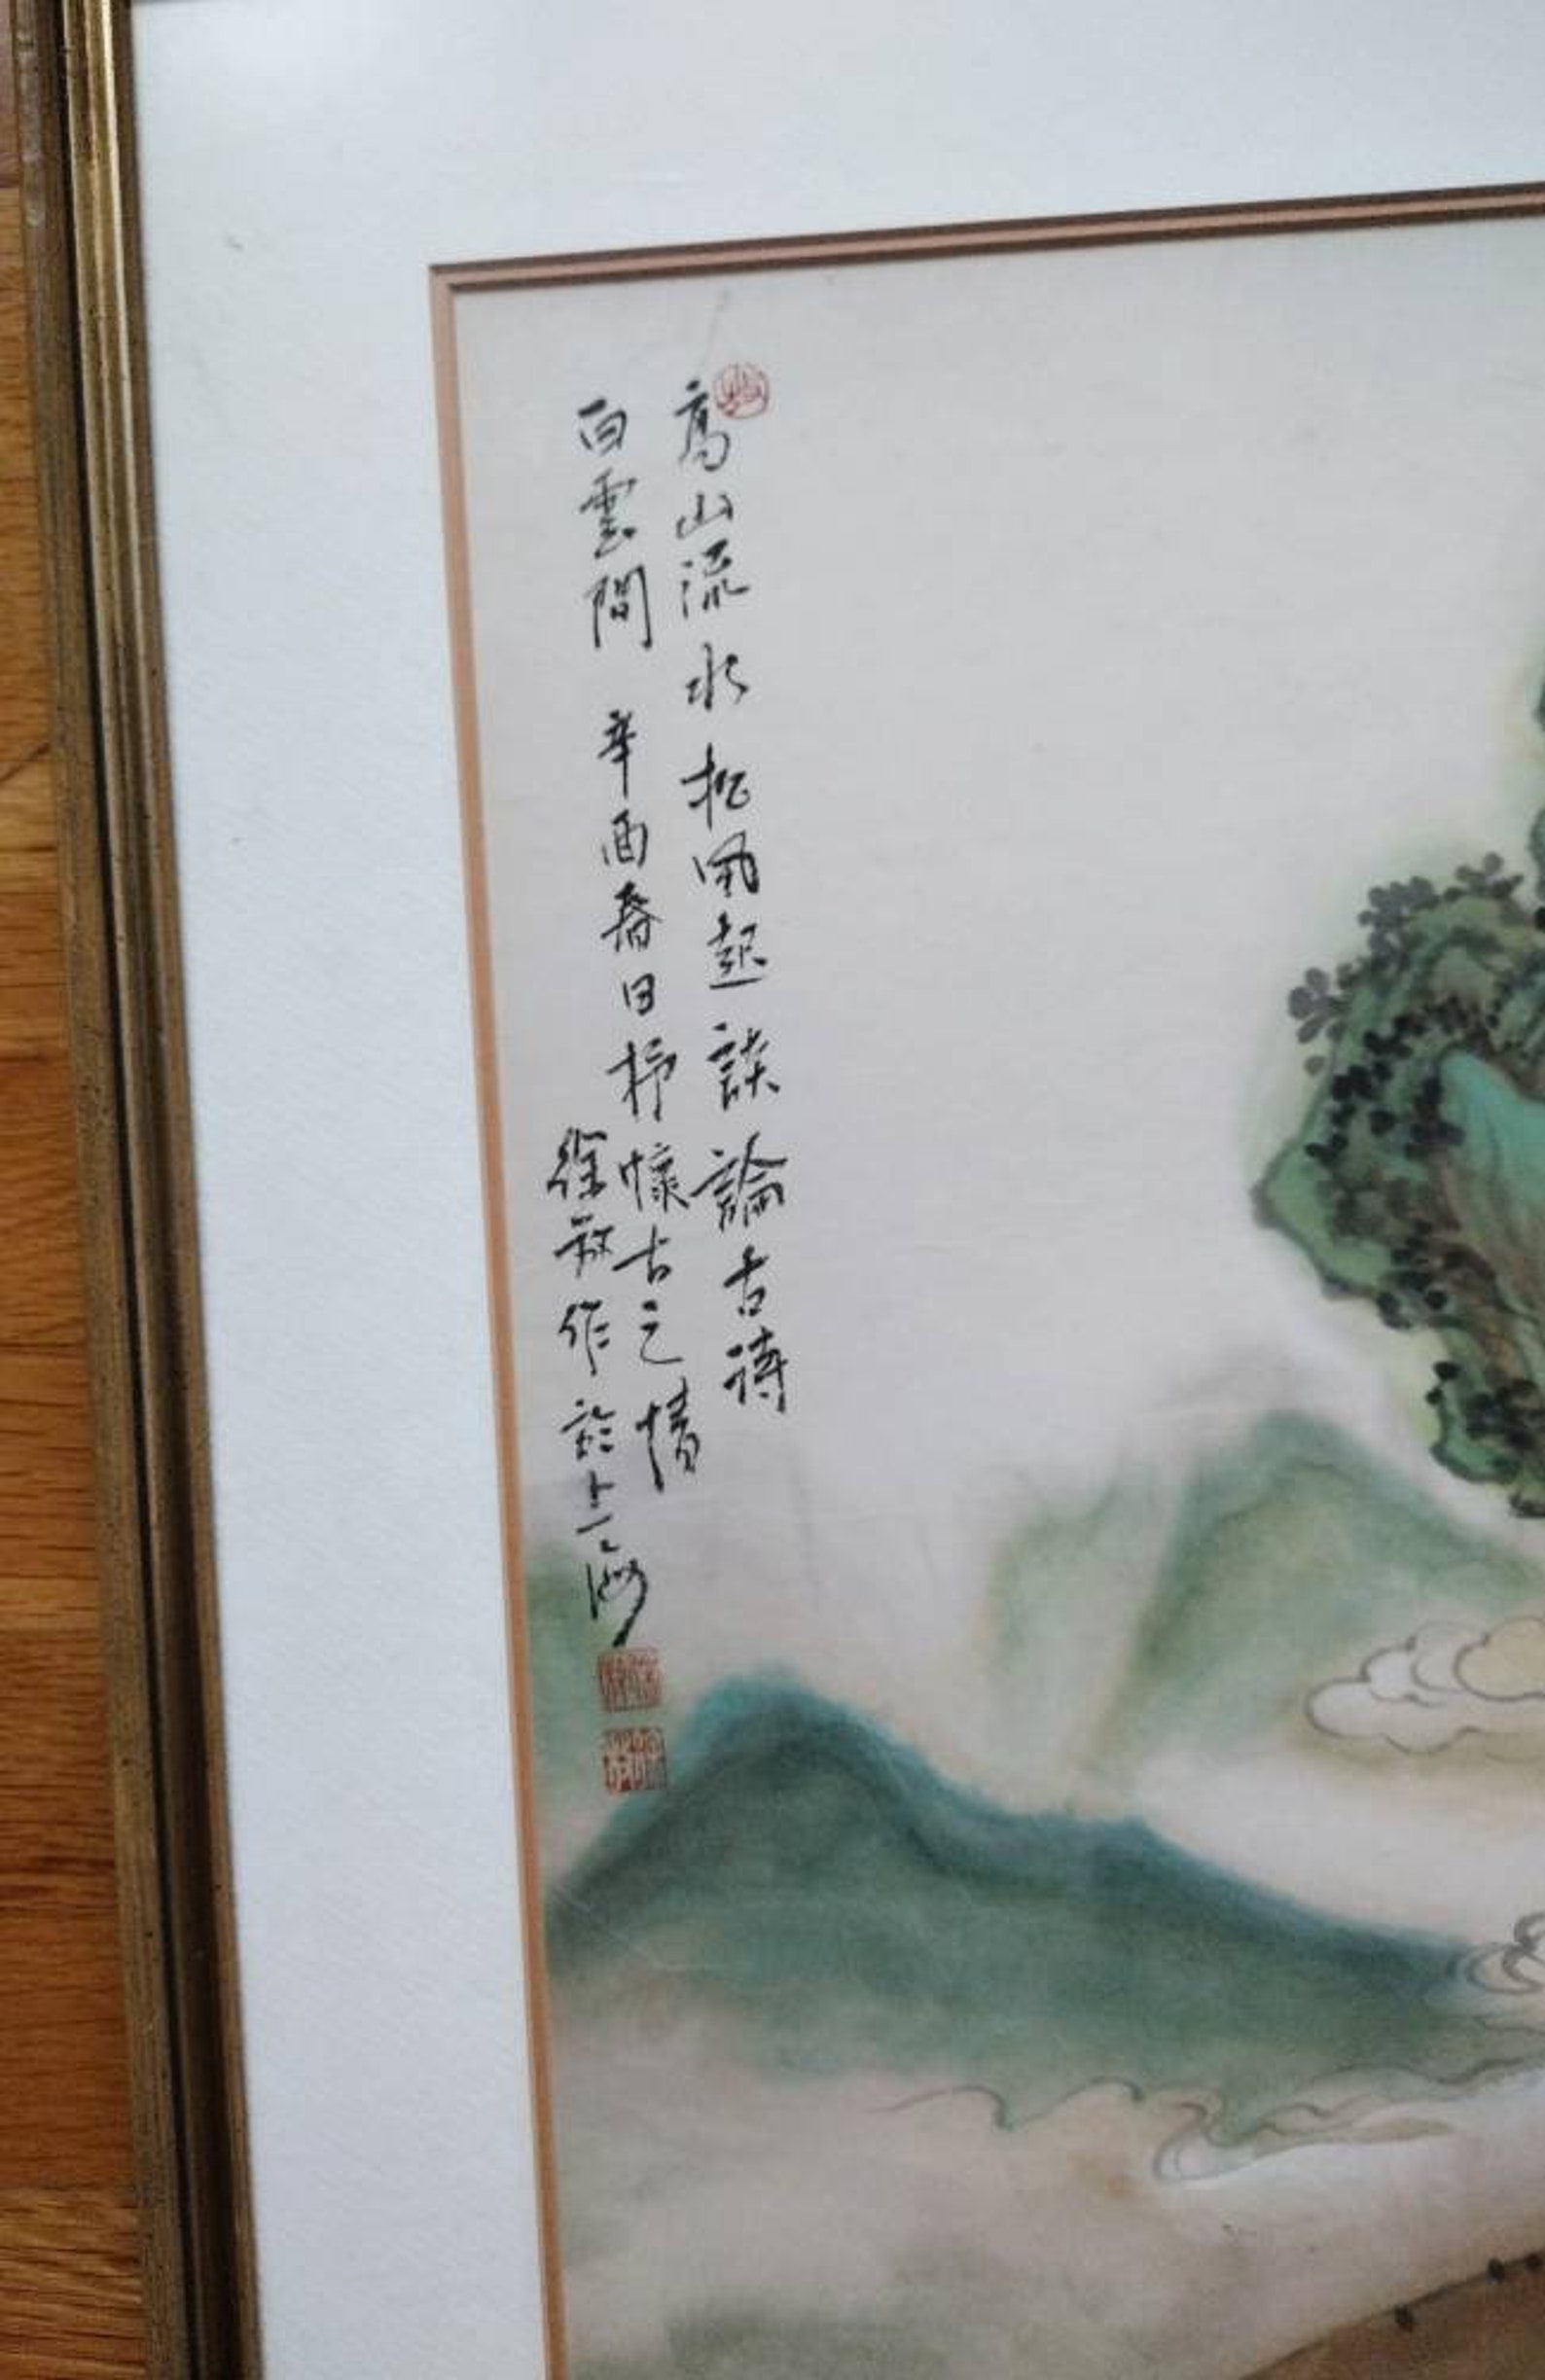 高山流水松風起談論古詩
白雲間 辛酉春日抒懷古之情
徐放作於上海